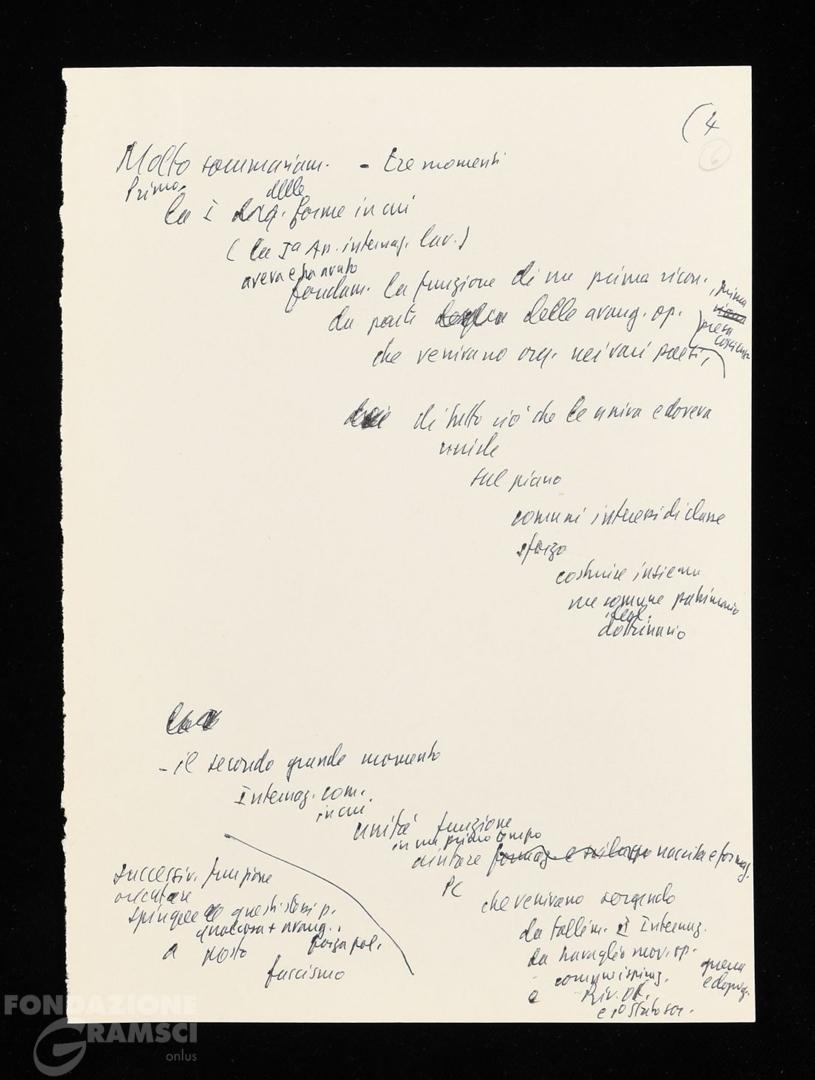 (4
6
Molto sommariam. - tre momenti
Primo, delle
la I forme in cui
(la Iª As. internaz. lav.)
aveva e ha avuto
fondam. la funzione di una prima ricon.
da parte delle avang. op.
prima
presa
coscienza
che venivano org. nei vari paesi,
di tutto ciò che le univa e doveva
unirle
sul piano
comuni interessi di classe
sforzo
costruire insieme
un comune patrimonio
ideal.
dottrinario
- il secondo grande momento
Internaz. com.
in cui
unità funzione
in un primo tempo
aiutare formaz. e sviluppo nascita e formaz.
PC
che venivano sorgendo
da fallim. II Internaz.
da travaglio mov. op.
guerra
e dopog.
e
Riv. Ott.
successiv. funzione
orientare
spingere questi stessi p.
avang.,
a posto forza pol.
fascismo
FONDAZIONE
GRAMSCI
onlus